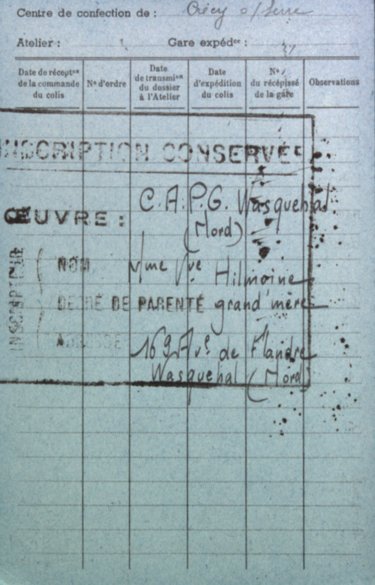 Centre de confection de : Crécy s/Serre
Atelier : 1 Gare expédᵗᵉ :
Date de réceptᵒⁿ de la commande du colis
Nᵒ d'ordre
Date de transmiᵒⁿ du dossier à l'Atelier
Date d'expédition du colis
Nᵒ du récépissé de la gare
Observations
INSCRIPTION CONSERVÉE
ŒUVRE : C.A.P.G. Wasquehal
(Nord)
INSCRIPTEUR
NOM Mme Vve Hilmoine
DEGRÉ DE PARENTÉ grand mère
ADRESSE 169 Av. de Flandre
Wasquehal (Nord)